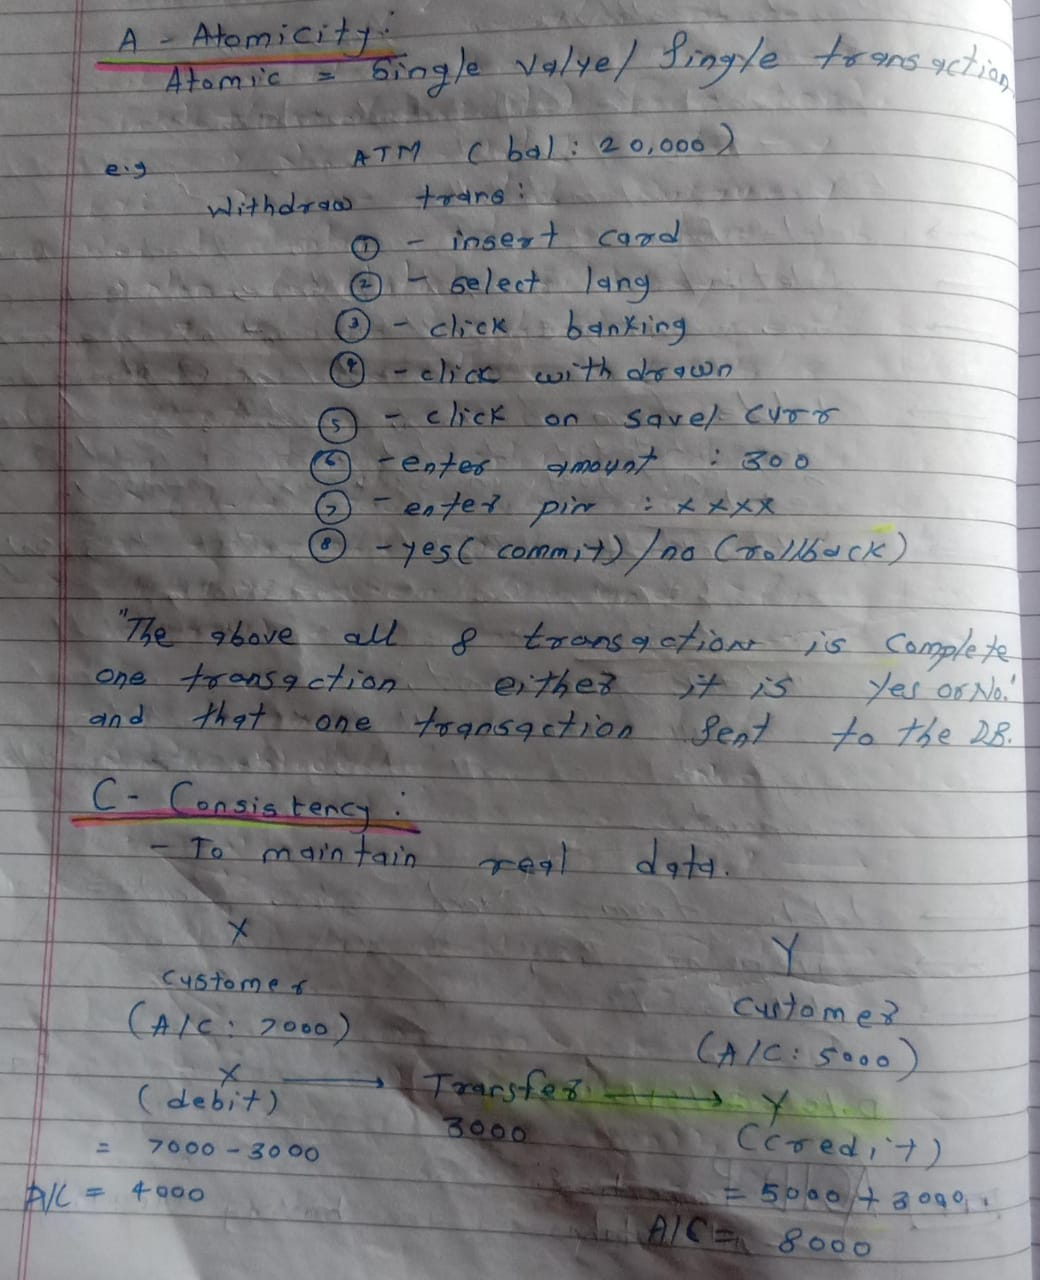 A - Atomicity:
Atomic = Single value/ Single transaction
e.g ATM (bal: 20,000)
Withdraw trans:
① - insert card
② - select lang
③ - click banking
④ - click with drawn
⑤ - click on save/ curr
⑥ - enter amount : 300
⑦ - enter pin : xxxx
⑧ - yes (commit) / no (rollback)
"The above all 8 transactions is Complete
one transaction either it is Yes or No."
and that one transaction sent to the DB.
C - Consistency:
- To maintain real data.
X Y
customer customer
(A/C: 7000) (A/C: 5000)
X → Transfer → Y
(debit) 3000 (credit)
= 7000 - 3000 = 5000 + 3000
A/C = 4000 A/C = 8000